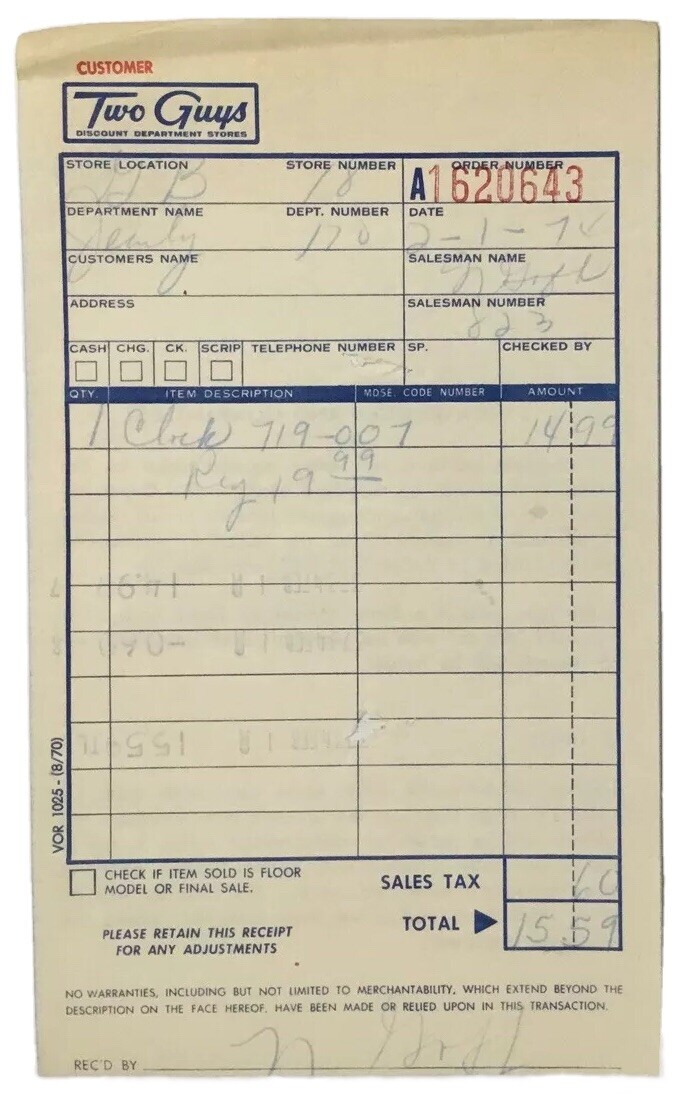 CUSTOMER
Two Guys
DISCOUNT DEPARTMENT STORES
STORE LOCATION STORE NUMBER ORDER NUMBER
G B 18 A1620643
DEPARTMENT NAME DEPT. NUMBER DATE
170 2-1-74
CUSTOMERS NAME SALESMAN NAME
N
ADDRESS SALESMAN NUMBER
823
CASH CHG. CK. SCRIP TELEPHONE NUMBER SP. CHECKED BY
QTY. ITEM DESCRIPTION MDSE. CODE NUMBER AMOUNT
1 Clock 719-007 14 99
Reg 19 99
14.99
15.59 TL
VOR 1025 - (8/70)
CHECK IF ITEM SOLD IS FLOOR
MODEL OR FINAL SALE.
SALES TAX 60
TOTAL 15 59
PLEASE RETAIN THIS RECEIPT
FOR ANY ADJUSTMENTS
NO WARRANTIES, INCLUDING BUT NOT LIMITED TO MERCHANTABILITY, WHICH EXTEND BEYOND THE
DESCRIPTION ON THE FACE HEREOF, HAVE BEEN MADE OR RELIED UPON IN THIS TRANSACTION.
REC'D BY N